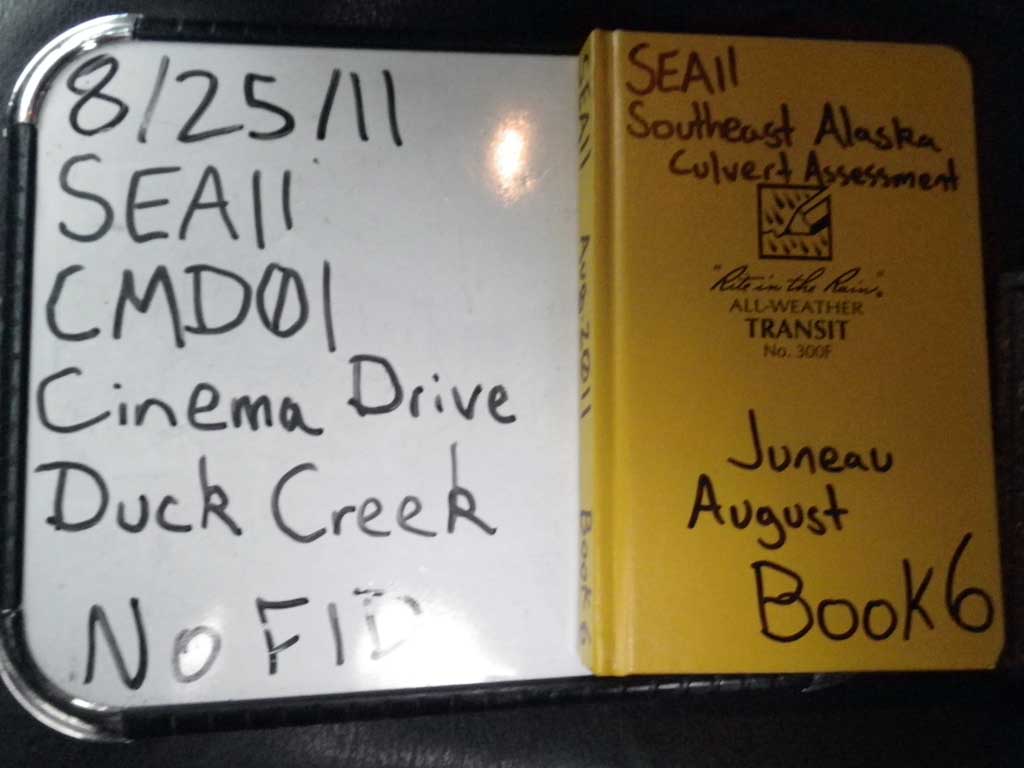 8/25/11
SEA11
CMD01
Cinema Drive
Duck Creek
No FID
SEA11 AUG 2011 Book 6
SEA11
Southeast Alaska
Culvert Assessment
"Rite in the Rain"®
ALL-WEATHER
TRANSIT
No. 300F
Juneau
August
Book 6